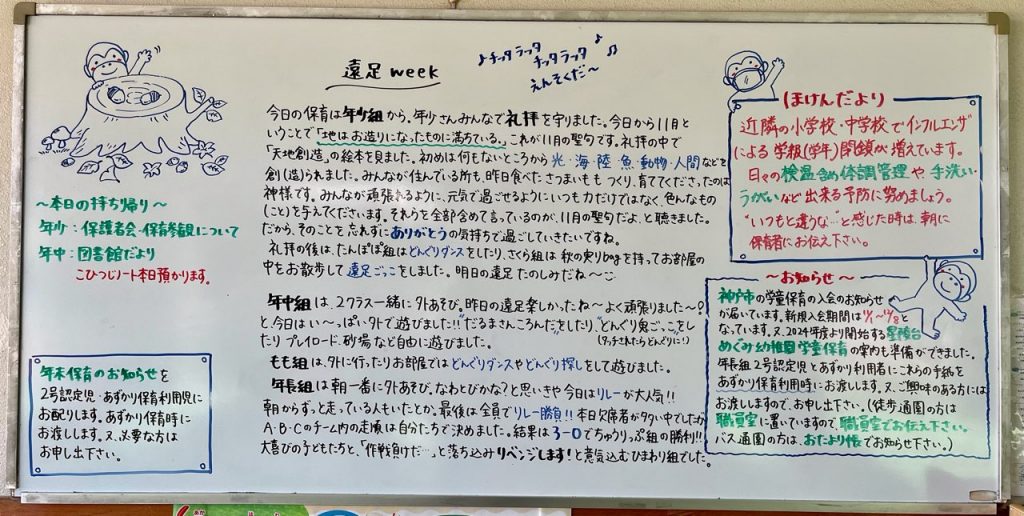 遠足week
♪チッタラッタ
チッタラッタ♪
えんそくだ〜♫
今日の保育は年少組から、年少さんみんなで礼拝を守りました。今日から11月と
いうことで「地はお造りになったものに満ちている。」これが11月の聖句です。礼拝の中で
「天地創造」の絵本を見ました。初めは何もないところから光・海・陸・魚・動物・人間などを
創(造)られました。みんなが住んでいる所も、昨日食べたさつまいももつくり、育ててくださったのは
神様です。みんなが頑張れるように、元気で過ごせるようにいつも力だけではなく、色んなもの
(こと)を与えてくださいます。それらを全部含めて言っているのが、11月の聖句だよ、と聴きました。
だから、そのことを忘れずにありがとうの気持ちで過ごしていきたいですね。
礼拝の後は、たんぽぽ組はどんぐりダンスをしたり、さくら組は秋の実りを持ってお部屋の
中をお散歩して遠足ごっこをしました。明日の遠足たのしみだね〜
年中組は、2クラス一緒に外あそび。昨日の遠足楽しかったね〜よく頑張りました〜♪
と、今日はい〜っぱい外で遊びました!!"だるまさんころんだ"をしたり、"どんぐり鬼ごっこ"をし
(タッチされたらどんぐりに!)
たりプレイロード、砂場など自由に遊びました。
もも組は、外に行ったりお部屋ではどんぐりダンスやどんぐり探しをして遊びました。
年長組は朝一番に外あそび。なわとびかな?と思いきや今日はリレーが大人気!!
朝からずっと走っている人もいたとか。最後は全員でリレー勝負!!本日欠席者が多い中でしたが
A・B・Cのチーム内の走順は自分たちで決めました。結果は3-0でちゅうりっぷ組の勝利!!
大喜びの子どもたちと、「作戦負けだ…」と落ち込みリベンジします!と意気込むひまわり組でした。
〜本日の持ち帰り〜
年少：保護者会・保育参観について
年中：図書館だより
こひつじノート本日預かります。
年末保育のお知らせを
2号認定児・あずかり保育利用児に
お配りします。あずかり保育時に
お渡しします。又、必要な方は
お申し出下さい。
ほけんだより
近隣の小学校・中学校でインフルエンザ
による学級(学年)閉鎖が増えています。
日々の検温含め体調管理や手洗い・
うがいなど出来る予防に努めましょう。
"いつもと違うな…"と感じた時は、朝に
保育者にお伝え下さい。
〜お知らせ〜
神戸市の学童保育の入会のお知らせ
が届いています。新規入会期間は11/1〜11/8と
なっています。又、2024年度より開始する星陵台
めぐみ幼稚園学童保育の案内も準備ができました。
年長組2号認定児とあずかり利用者にこれらの手紙を
あずかり保育利用時にお渡しします。又、ご興味のある方には
お渡ししますので、お申し出下さい。(徒歩通園の方は
職員室に置いていますので、職員室でお伝え下さい。
バス通園の方は、おたより帳でお知らせ下さい。)